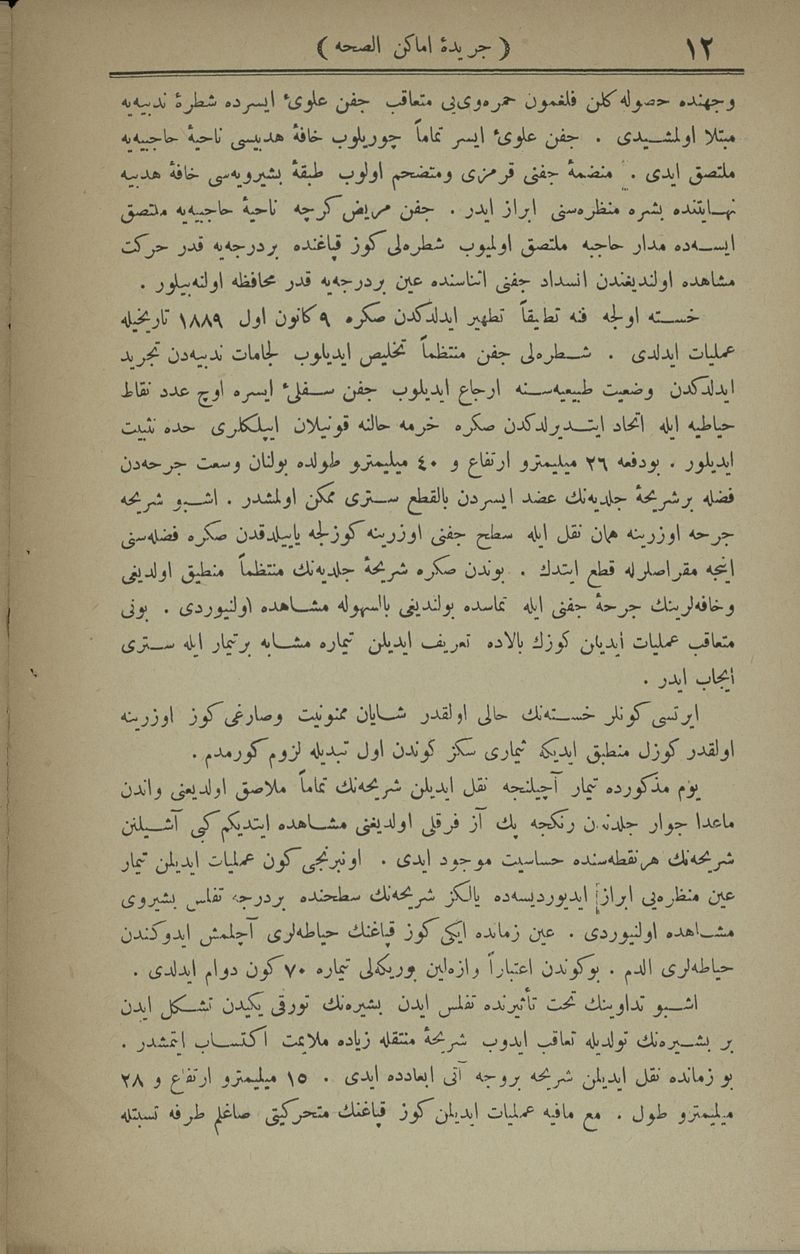 ١٢
( جريدهٔ اماكن الصحه )
وجهنده حصوله كلن فلغمون حمره‌وى‌يى متعاقب جفن علوىء ايسرده شطرهٔ ندبيه‌يه
مبتلا اولمشيدى . جفن علوىء ايسر تماماً چوريلوب حافهٔ هدبيسى ناحيهٔ حاجبيه‌يه
ملتصق ايدى . منضمهٔ جفنى قرمزى ومتضخم اولوب طبقهٔ بشيرويه‌سى حافهٔ هدبيه
نهايتنده بشره منظره‌سنى ابراز ايدر . جفن مريض كرچه ناحيهٔ حاجبيه‌يه ملتصق
ايسه‌ده مدار حاجبه ملتصق اولميوب شطره‌لى كوز قپاغنده بردرجه‌يه قدر حركت
مشاهده اولنديغندن انسداد جفنى اثناسنده عين بردرجه‌يه قدر محافظه اولنه‌بيلور .
خسته اولجه فنه تطبيقاً تطهير ايدلدكدن صكره ٩ كانون اول ١٨٨٩ تاريخيله
عمليات ايدلدى . شطره‌لى جفن منتظماً تخليص ايديلوب لجامات ندبيه‌دن تجريد
ايدلدكدن وضعيت طبيعيه‌سنه ارجاع ايديلوب جفن سفلىء ايسره اوچ عدد نقاط
خياطيه ايله اتحاد ايتديرلدكدن صكره خرمه حالنه قونيلان ايپلكلرى خده تثبيت
ايديلور . بودفعه ٢٦ ميليمترو ارتفاع و ٤٠ ميليمترو طولده بولنان وسعت جرحه‌دن
فضله برشريحهٔ جلديه‌نك عضد ايسردن بالقطع سترى ممكن اولمشدر . اشبو شريحه
جرحه اوزرينه همان نقل ايله سطح جفنى اوزرينه كوزلجه ياپيلدقدن صكره فضله‌سنى
اينجه مقراصلرله قطع ايتدك . بوندن صكره شريحهٔ جلديه‌نك منتظماً منطبق اولديغى
وحافه‌لرينك جرحهٔ جفنى ايله تماسده بولنديغى بالسهوله مشاهده اولنيوردى . بونى
متعاقب عمليات ايديلن كوزك بالاده تعريف ايديلن تيماره مشابه برتيمار ايله سترى
ايجاب ايدر .
ايرتسى كونلر خسته‌نك حالى اولقدر شايان ممنونيت وصارغى كوز اوزرينه
اولقدر كوزل منطبق ايديكه تيمارى سكز كوندن اول تبديله لزوم كورمدم .
يوم مذكورده تيمار آچيلنجه نقل ايديلن شريحه‌نك تماماً ملاصق اولديغنى واندن
ماعدا جوار جلددن رنكجه پك آز فرقلى اولديغنى مشاهده ايتديكم كبى آشيلنن
شريحه‌نك هرنقطه‌سنده حساسيت موجود ايدى . اون‌برنجى كون عمليات ايديلن تيمار
عين منظره‌يى ابراز ايديورديسه‌ده يالكز شريحه‌نك سطحنده بردرجه تفلس بشيروى
مشاهده اولنيوردى . عين زمانده ايكى كوز قپاغنك خياطه‌لرى آچلمش ايدوكندن
خياطه‌لرى الدم . بوكوندن اعتباراً وازه‌لين بوريكه‌لى تيماره ٧٠ كون دوام ايدلدى .
اشبو تداوينك تحت تأثيرنده تفلس ايدن بشيره‌نك تورقى يكيدن تشكل ايدن
بر بشيره‌نك توليديله تعاقب ايدوب شريحهٔ منتقله زياده ملايمت اكتساب ايتمشدر .
بو زمانده نقل ايديلن شريحه بروجه آتى ابعادده ايدى . ١٥ ميليمترو ارتفاع و ٢٨
ميليمترو طول . مع مافيه عمليات ايديلن كوز قپاغنك متحركيتى صاغلم طرفه نسبتله